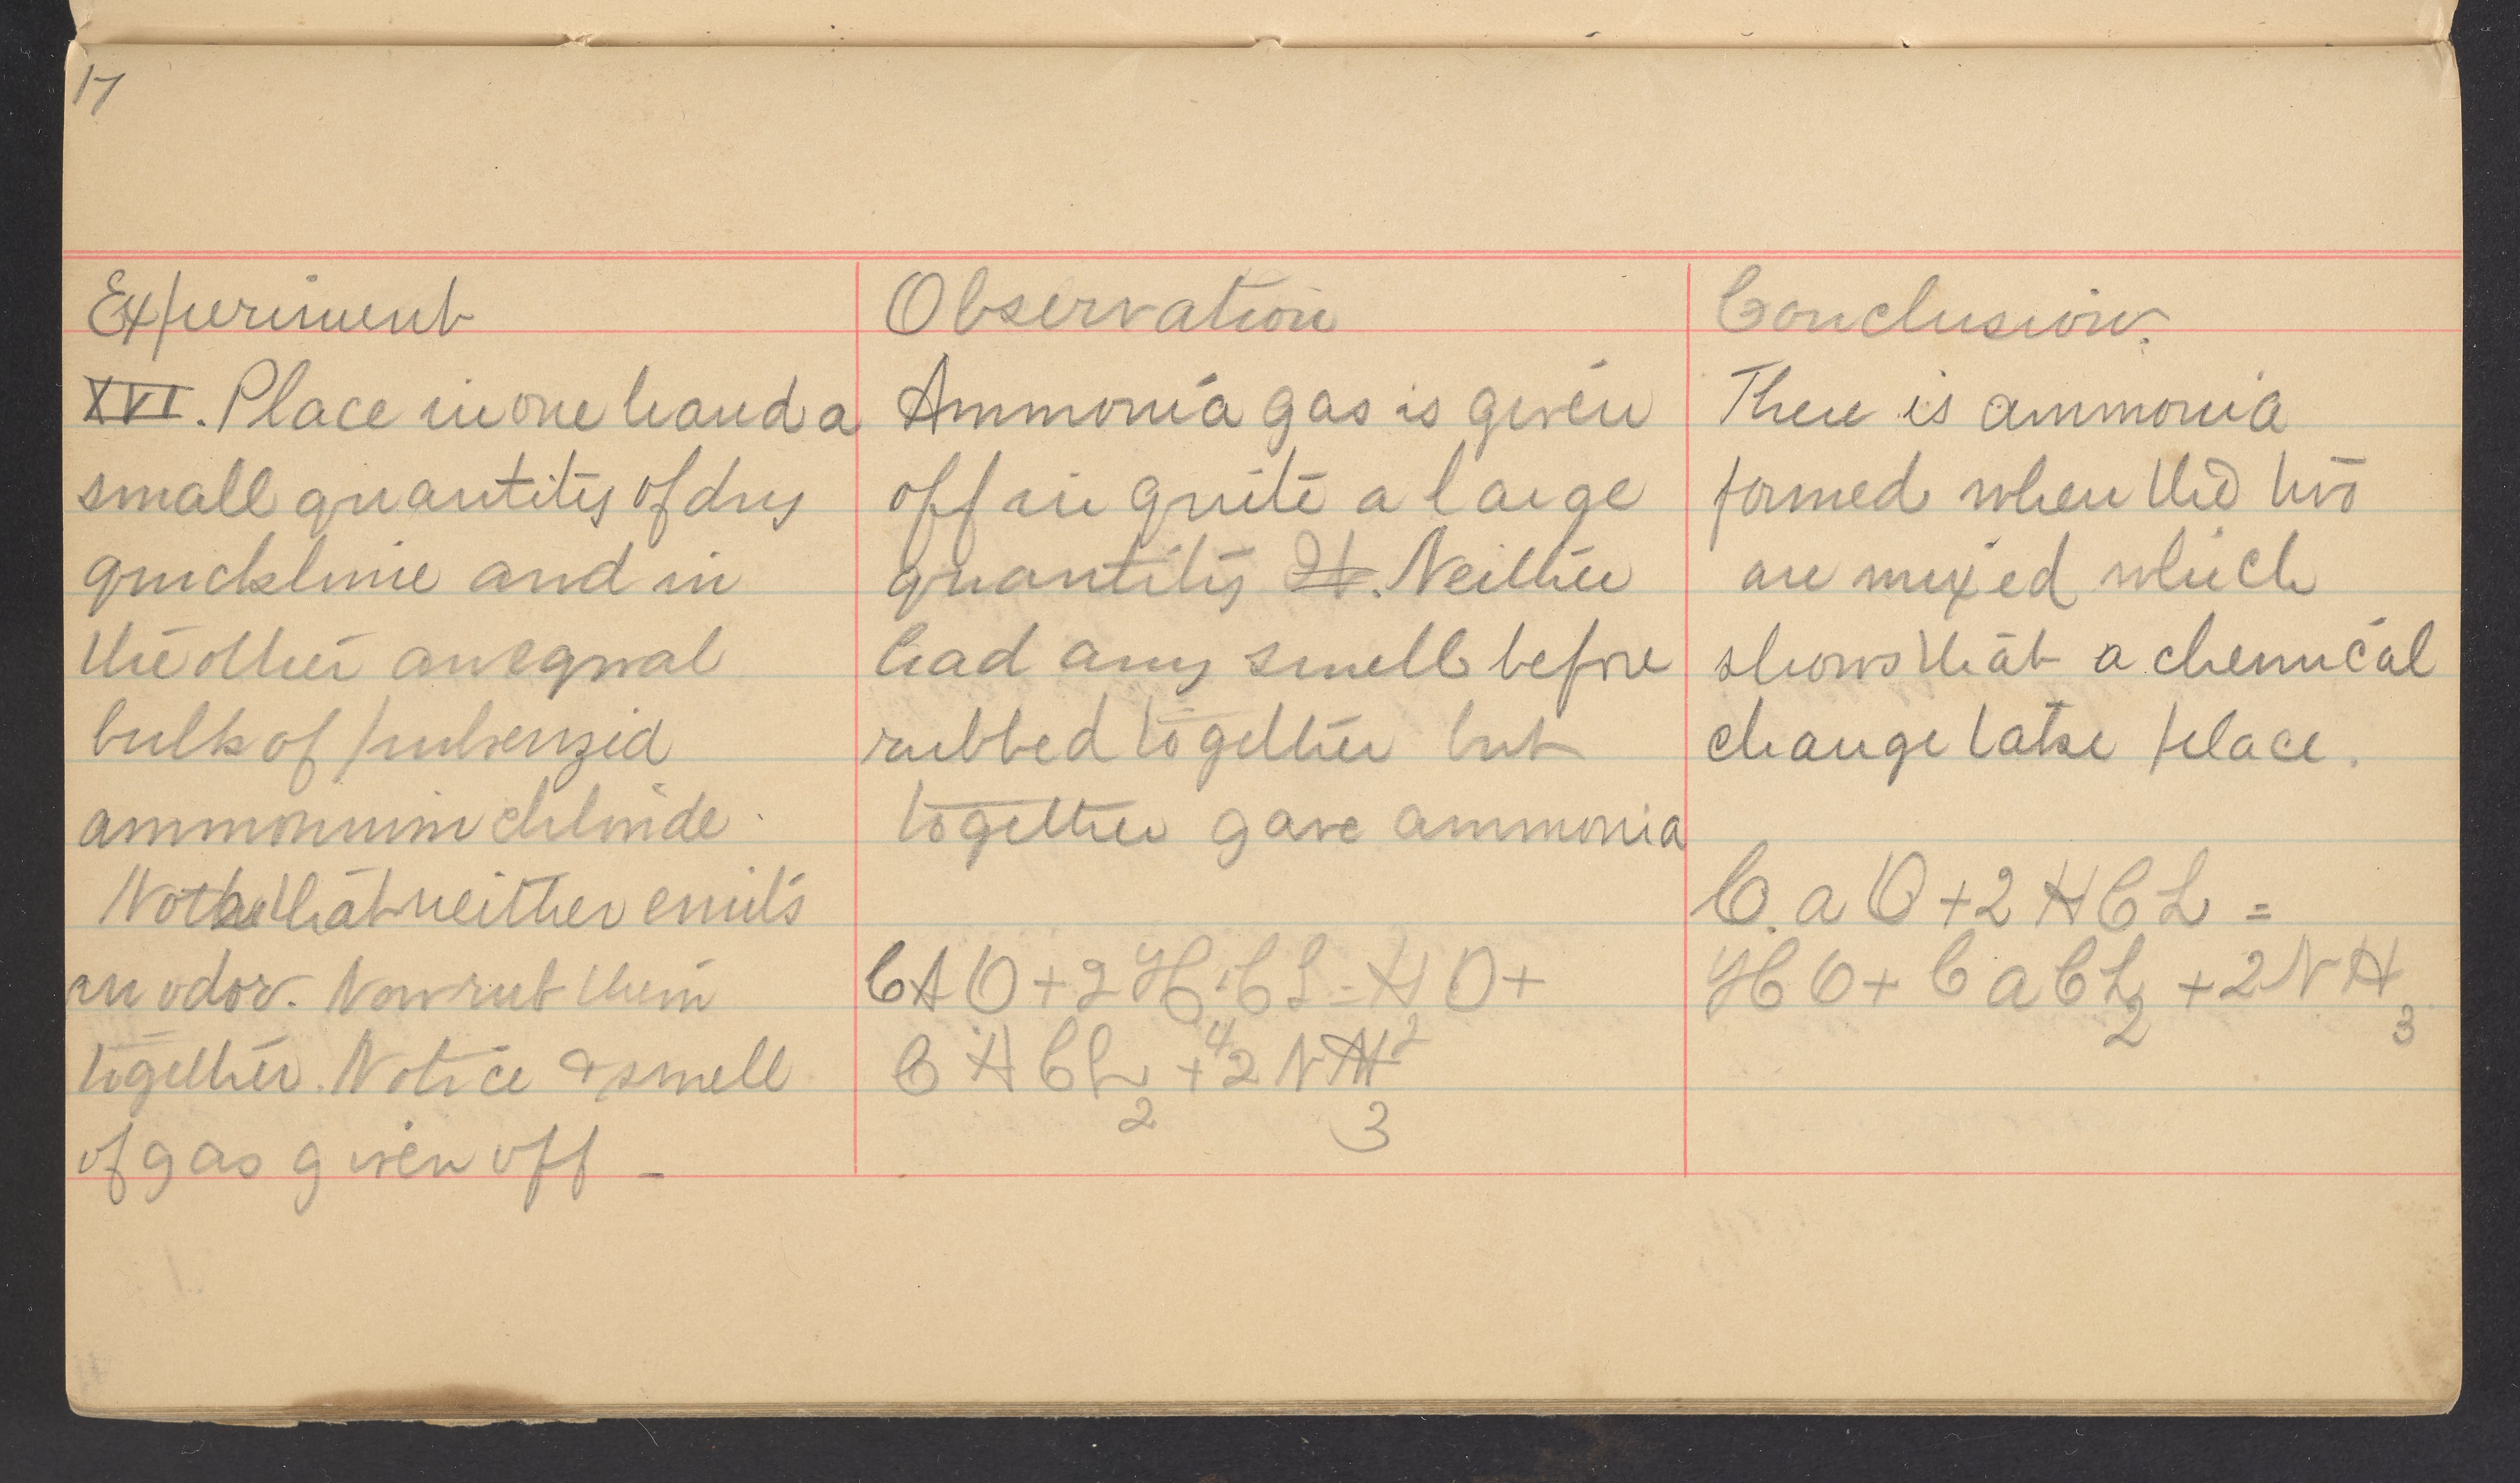 17
Experiment
XVI. Place in one hand a
small quantity of dry
quicklime and in
the other an equal
bulk of pulverized
ammonium chloride.
Note that neither emits
an odor. Now rub them
together. Notice & smell
of gas given off –
Observation
Ammonia gas is given
off in quite a large
quantity It. Neither
had any smell before
rubbed together but
together gave ammonia
CAO + 2 H4CL = H2O +
CACL2 + 2NH3
Conclusion.
There is ammonia
formed when the two
are mixed which
shows that a chemical
change take place.
C.aO + 2HCL =
HO + CaCL2 + 2NH3